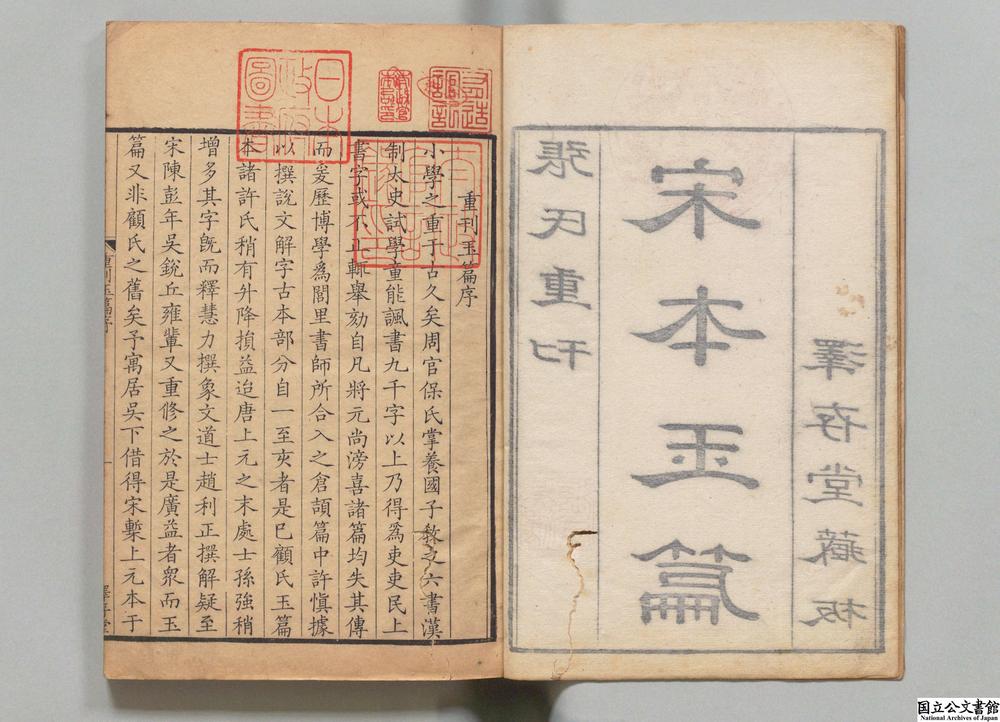 張氏重刊
宋本玉篇
澤存堂藏板
重刊玉篇序
小學之重于古久矣周官保氏掌養國子敎之六書漢
制太史試學童能諷書九千字以上乃得爲吏吏民上
書字或不正輒舉劾自凡將元尚滂喜諸篇均失其傳
而爰歷博學爲閭里書師所合入之倉頡篇中許愼據
以撰說文解字古本部分自一至亥者是已顧氏玉篇
本諸許氏稍有升降損益迨唐上元之末處士孫強稍
增多其字旣而釋慧力撰象文道士趙利正撰解疑至
宋陳彭年吳銳丘雍輩又重修之於是廣益者衆而玉
篇又非顧氏之舊矣予寓居吳下借得宋槧上元本于
重刊玉篇序
澤存堂
日本
政府
圖書
国立公文書館
National Archives of Japan